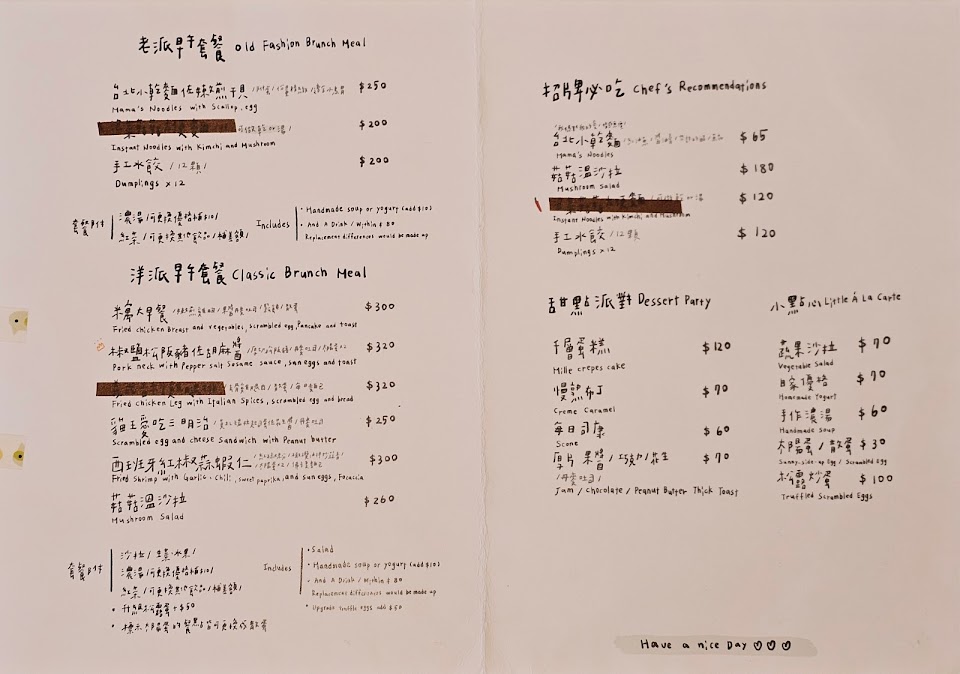 老派早午套餐 Old Fashion Brunch Meal
台北小乾麵佐辣煎干貝 $250
Mama's Noodles with Scallop, egg
$200
Instant Noodles with Kimchi and Mushroom
手工水餃 /12顆/ $200
Dumplings x12
套餐附
濃湯/可更換優格補$10/
紅茶/可更換其他飲品/補差額/
Includes
• Handmade soup or yogurt (add $10)
• And A Drink / Within $80
Replacement differences would be made up
洋派早午套餐 Classic Brunch Meal
大早餐 $300
Fried chicken Breast and vegetables, scrambled egg, Pancake and toast
椒鹽松阪豬佐胡麻醬 $320
Pork neck with Pepper salt Sesame sauce, sun eggs and toast
$320
Fried chicken Leg with Italian Spices, scrambled egg and bread
貓王愛吃三明治 $250
Scrambled egg and cheese Sandwich with Peanut butter
西班牙紅椒蒜蝦仁 $300
Fried Shrimp with Garlic, Chili, sweet paprika, and sun eggs, Focaccia
菇菇溫沙拉 $260
Mushroom Salad
套餐附
沙拉/ 水果/
濃湯/可更換優格補$10/
紅茶/可更換其他飲品/補差額/
• 升級松露蛋+$50
• 標示太陽蛋的餐點皆可更換成散蛋
Includes
• Salad
• Handmade soup or yogurt (add $10)
• And A Drink / Within $80
Replacement differences would be made up
• Upgrade truffle eggs add $50
招牌必吃 Chef's Recommendations
台北小乾麵 $65
Mama's Noodles
菇菇溫沙拉 $180
Mushroom Salad
$120
Instant Noodles with Kimchi and Mushroom
手工水餃 /12顆 $120
Dumplings x12
甜點派對 Dessert Party
千層蛋糕 $120
Mille crepes cake
慢熟布丁 $70
Creme Caramel
每日司康 $60
Scone
厚片 果醬/巧發/花生 $70
Jam / Chocolate / Peanut Butter Thick Toast
小點心 Little Á La Carte
蔬果沙拉 $70
Vegetable Salad
自家優格 $70
Homemade Yogurt
手作濃湯 $60
Handmade Soup
太陽蛋/散蛋 $30
Sunny-side-up Egg / Scrambled Egg
松露炒蛋 $100
Truffled Scrambled Eggs
Have a nice Day ♡♡♡